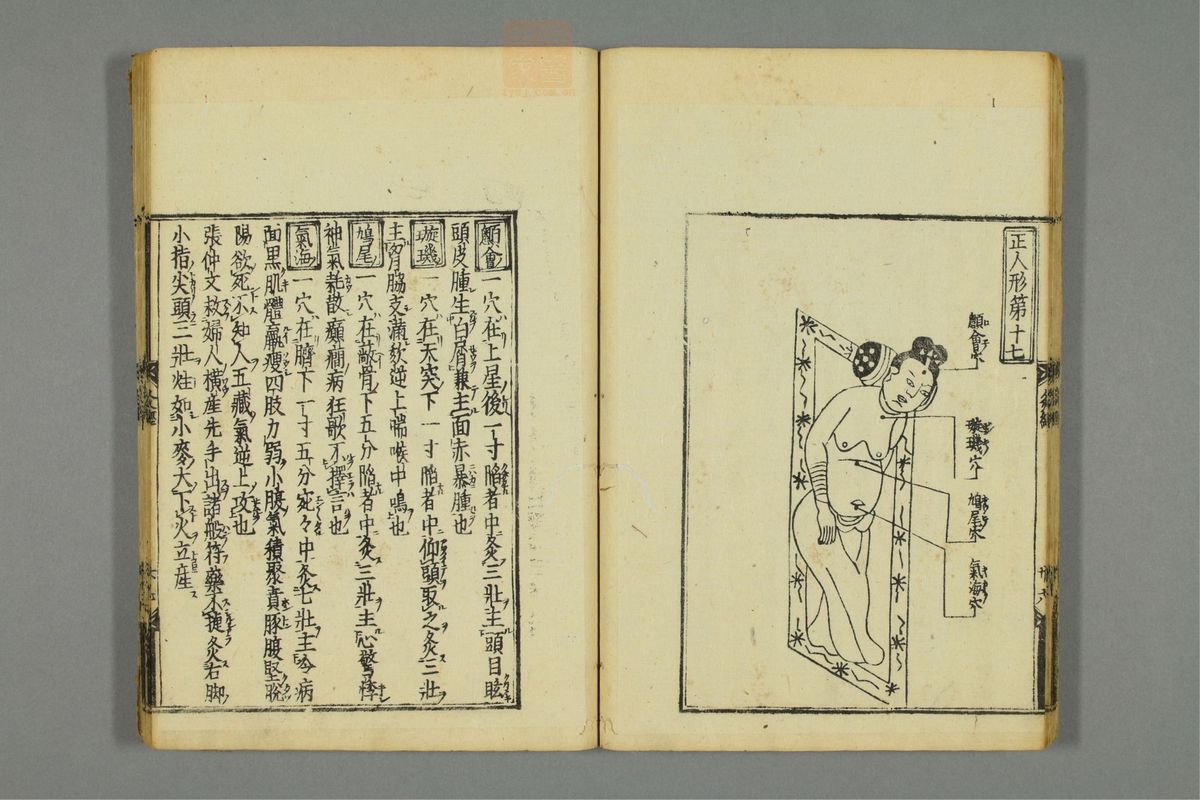 正人形第十七
顖會穴
璇璣穴
鳩尾穴
氣海穴
顖會 一穴在上星後一寸陷者中灸三壯主頭目眩
頭皮腫生白屑兼主面赤暴腫也
璇璣 一穴在天突下一寸陷者中仰頭取之灸三壯
主胷脇支滿欬逆上喘喉中鳴也
鳩尾 一穴在蔽骨下五分陷者中灸三壯主心驚悸
神氣耗散癲癇病狂歌不擇言也
氣海 一穴在臍下一寸五分宛々中灸七壯主冷病
面黑肌體羸瘦四肢力弱小腹氣積聚賁豚腹堅脫
陽欲死不知人五藏氣逆上攻也
張仲文救婦人橫産先手出諸般符藥不捷灸右脚
小指尖頭三壯炷如小麥大下火立産